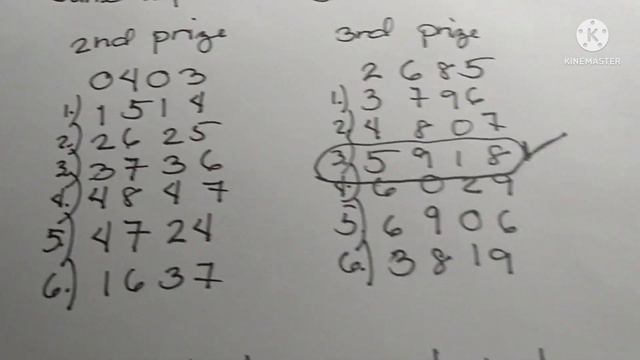 2nd prize
0403
1.) 1514
2.) 2625
3.) 3736
4.) 4847
5.) 4724
6.) 1637
3rd prize
2685
1.) 3796
2.) 4807
3.) 5918
4.) 6029
5.) 6906
6.) 3819
KINEMASTER